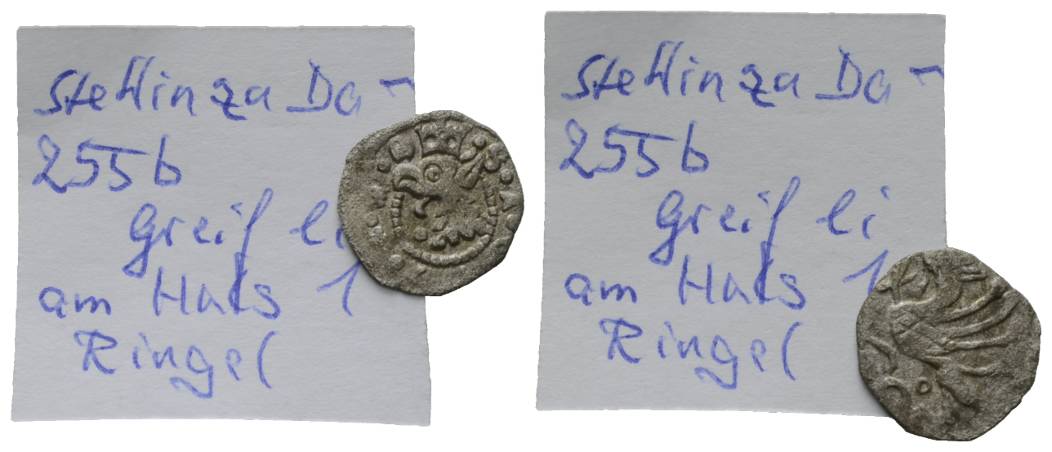 Stettin za Da-
255b
Greif li
am Hals 1
Ringel
Stettin za Da-
255b
Greif li
am Hals 1
Ringel